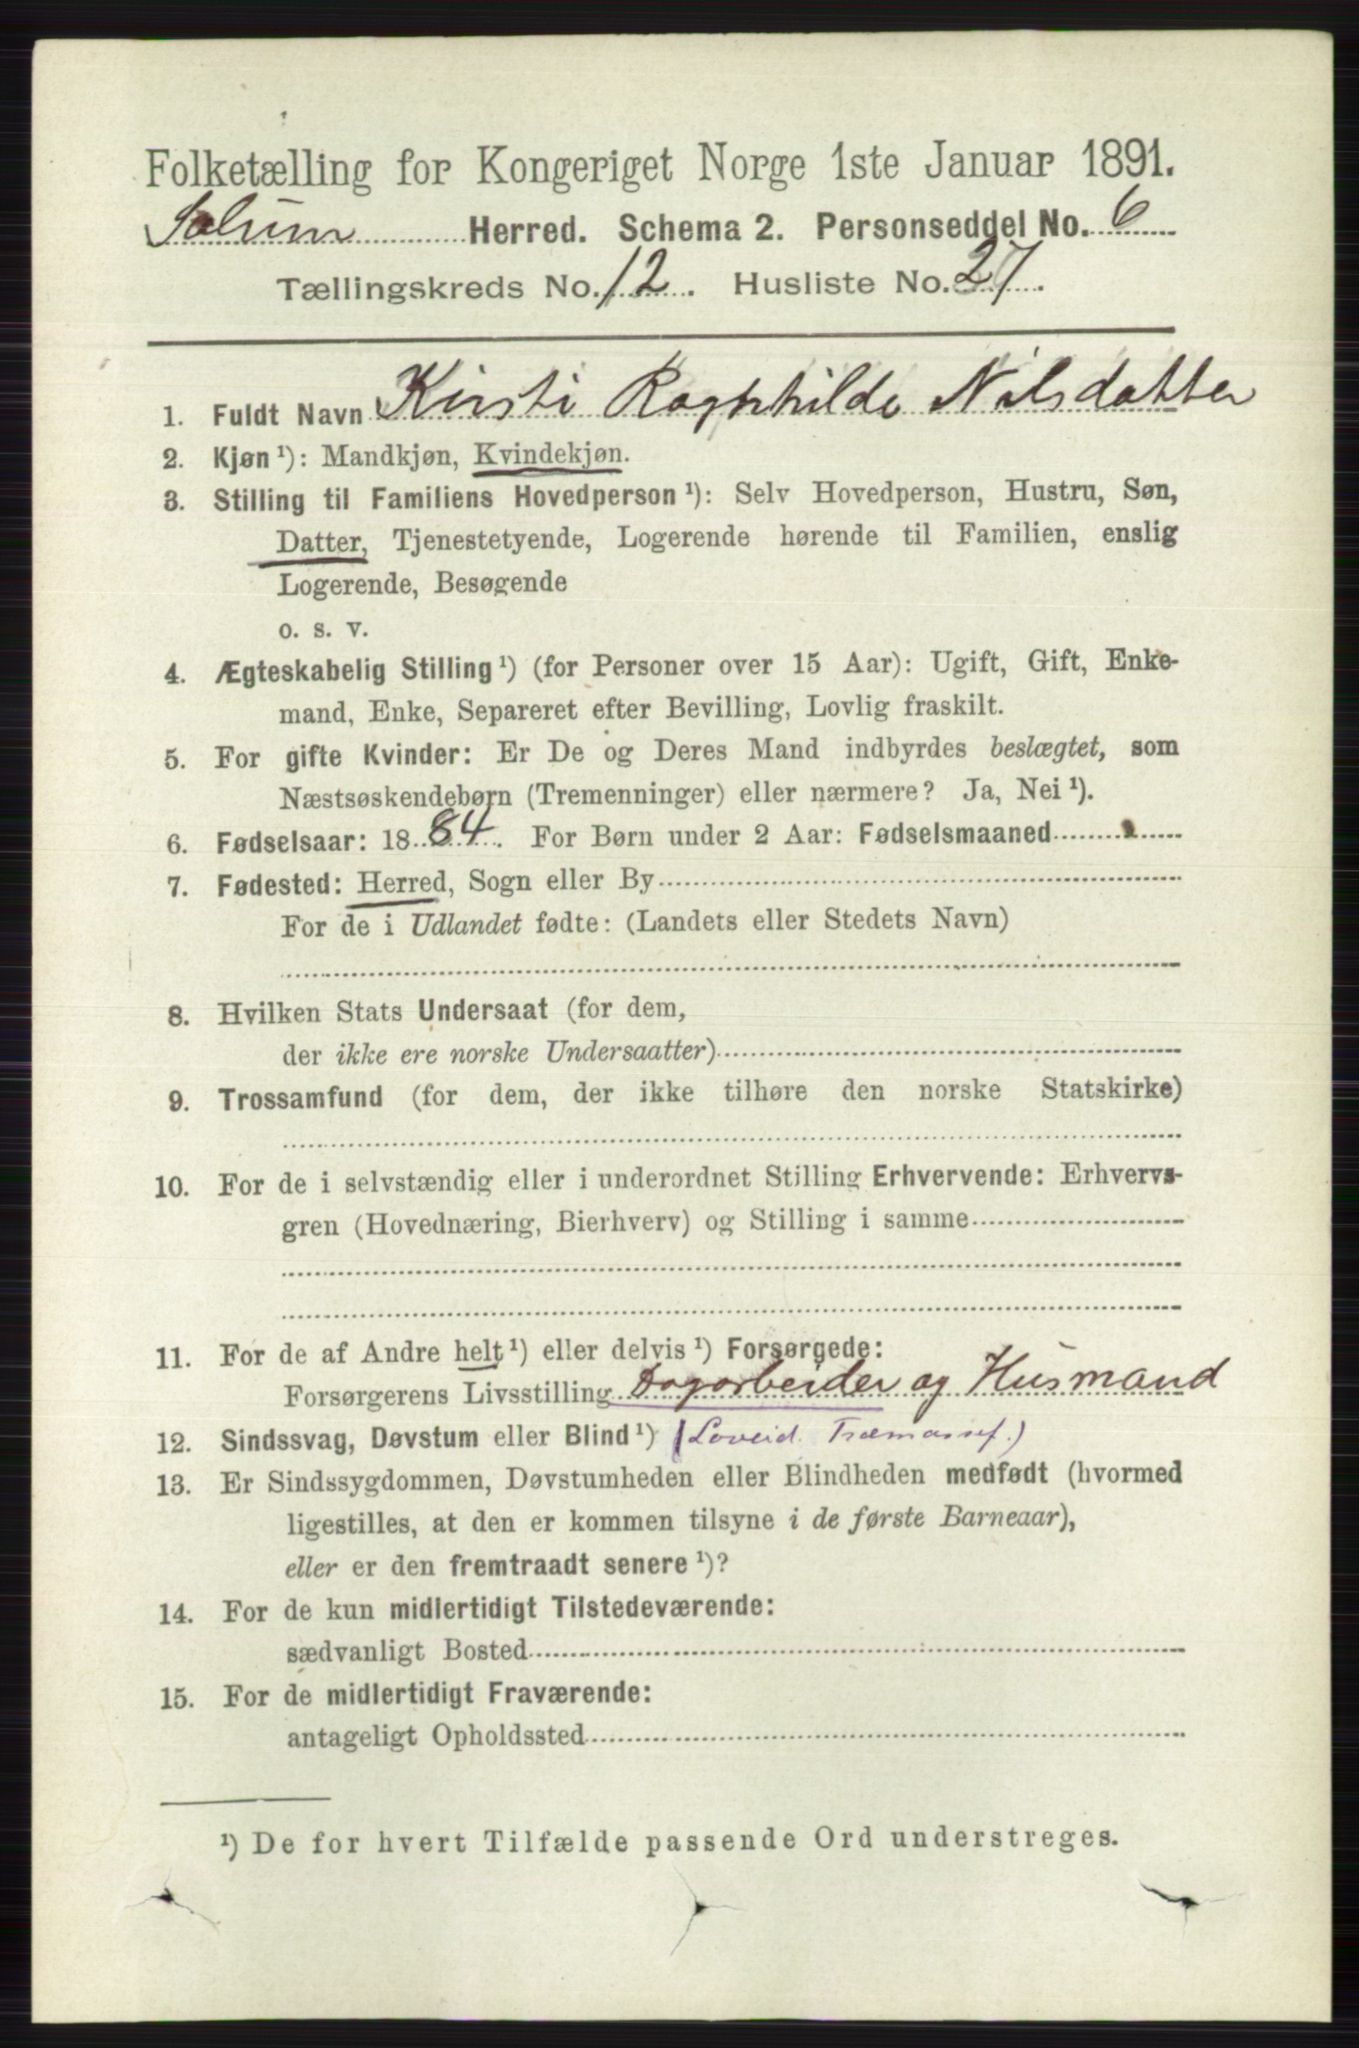 Folketælling for Kongeriget Norge 1ste Januar 1891.
Solum Herred. Schema 2. Personseddel No. 6
Tællingskreds No. 12. Husliste No. 27.
1. Fuldt Navn Kirsti Ragnhilde Nilsdatter
2. Kjøn ¹): Mandkjøn, Kvindekjøn.
3. Stilling til Familiens Hovedperson ¹): Selv Hovedperson, Hustru, Søn,
Datter, Tjenestetyende, Logerende hørende til Familien, enslig
Logerende, Besøgende
o. s. v.
4. Ægteskabelig Stilling ¹) (for Personer over 15 Aar): Ugift, Gift, Enke-
mand, Enke, Separeret efter Bevilling, Lovlig fraskilt.
5. For gifte Kvinder: Er De og Deres Mand indbyrdes beslægtet, som
Næstsøskendebørn (Tremenninger) eller nærmere? Ja, Nei ¹).
6. Fødselsaar: 1884. For Børn under 2 Aar: Fødselsmaaned
7. Fødested: Herred, Sogn eller By
For de i Udlandet fødte: (Landets eller Stedets Navn)
8. Hvilken Stats Undersaat (for dem,
der ikke ere norske Undersaatter)
9. Trossamfund (for dem, der ikke tilhøre den norske Statskirke)
10. For de i selvstændig eller i underordnet Stilling Erhvervende: Erhvervs-
gren (Hovednæring, Bierhverv) og Stilling i samme
11. For de af Andre helt ¹) eller delvis ¹) Forsørgede:
Forsørgerens Livsstilling Dagarbeider og Husmand
12. Sindssvag, Døvstum eller Blind ¹) (Loveid. Træmassef.)
13. Er Sindssygdommen, Døvstumheden eller Blindheden medfødt (hvormed
ligestilles, at den er kommen tilsyne i de første Barneaar),
eller er den fremtraadt senere ¹)?
14. For de kun midlertidigt Tilstedeværende:
sædvanligt Bosted
15. For de midlertidigt Fraværende:
antageligt Opholdssted
¹) De for hvert Tilfælde passende Ord understreges.